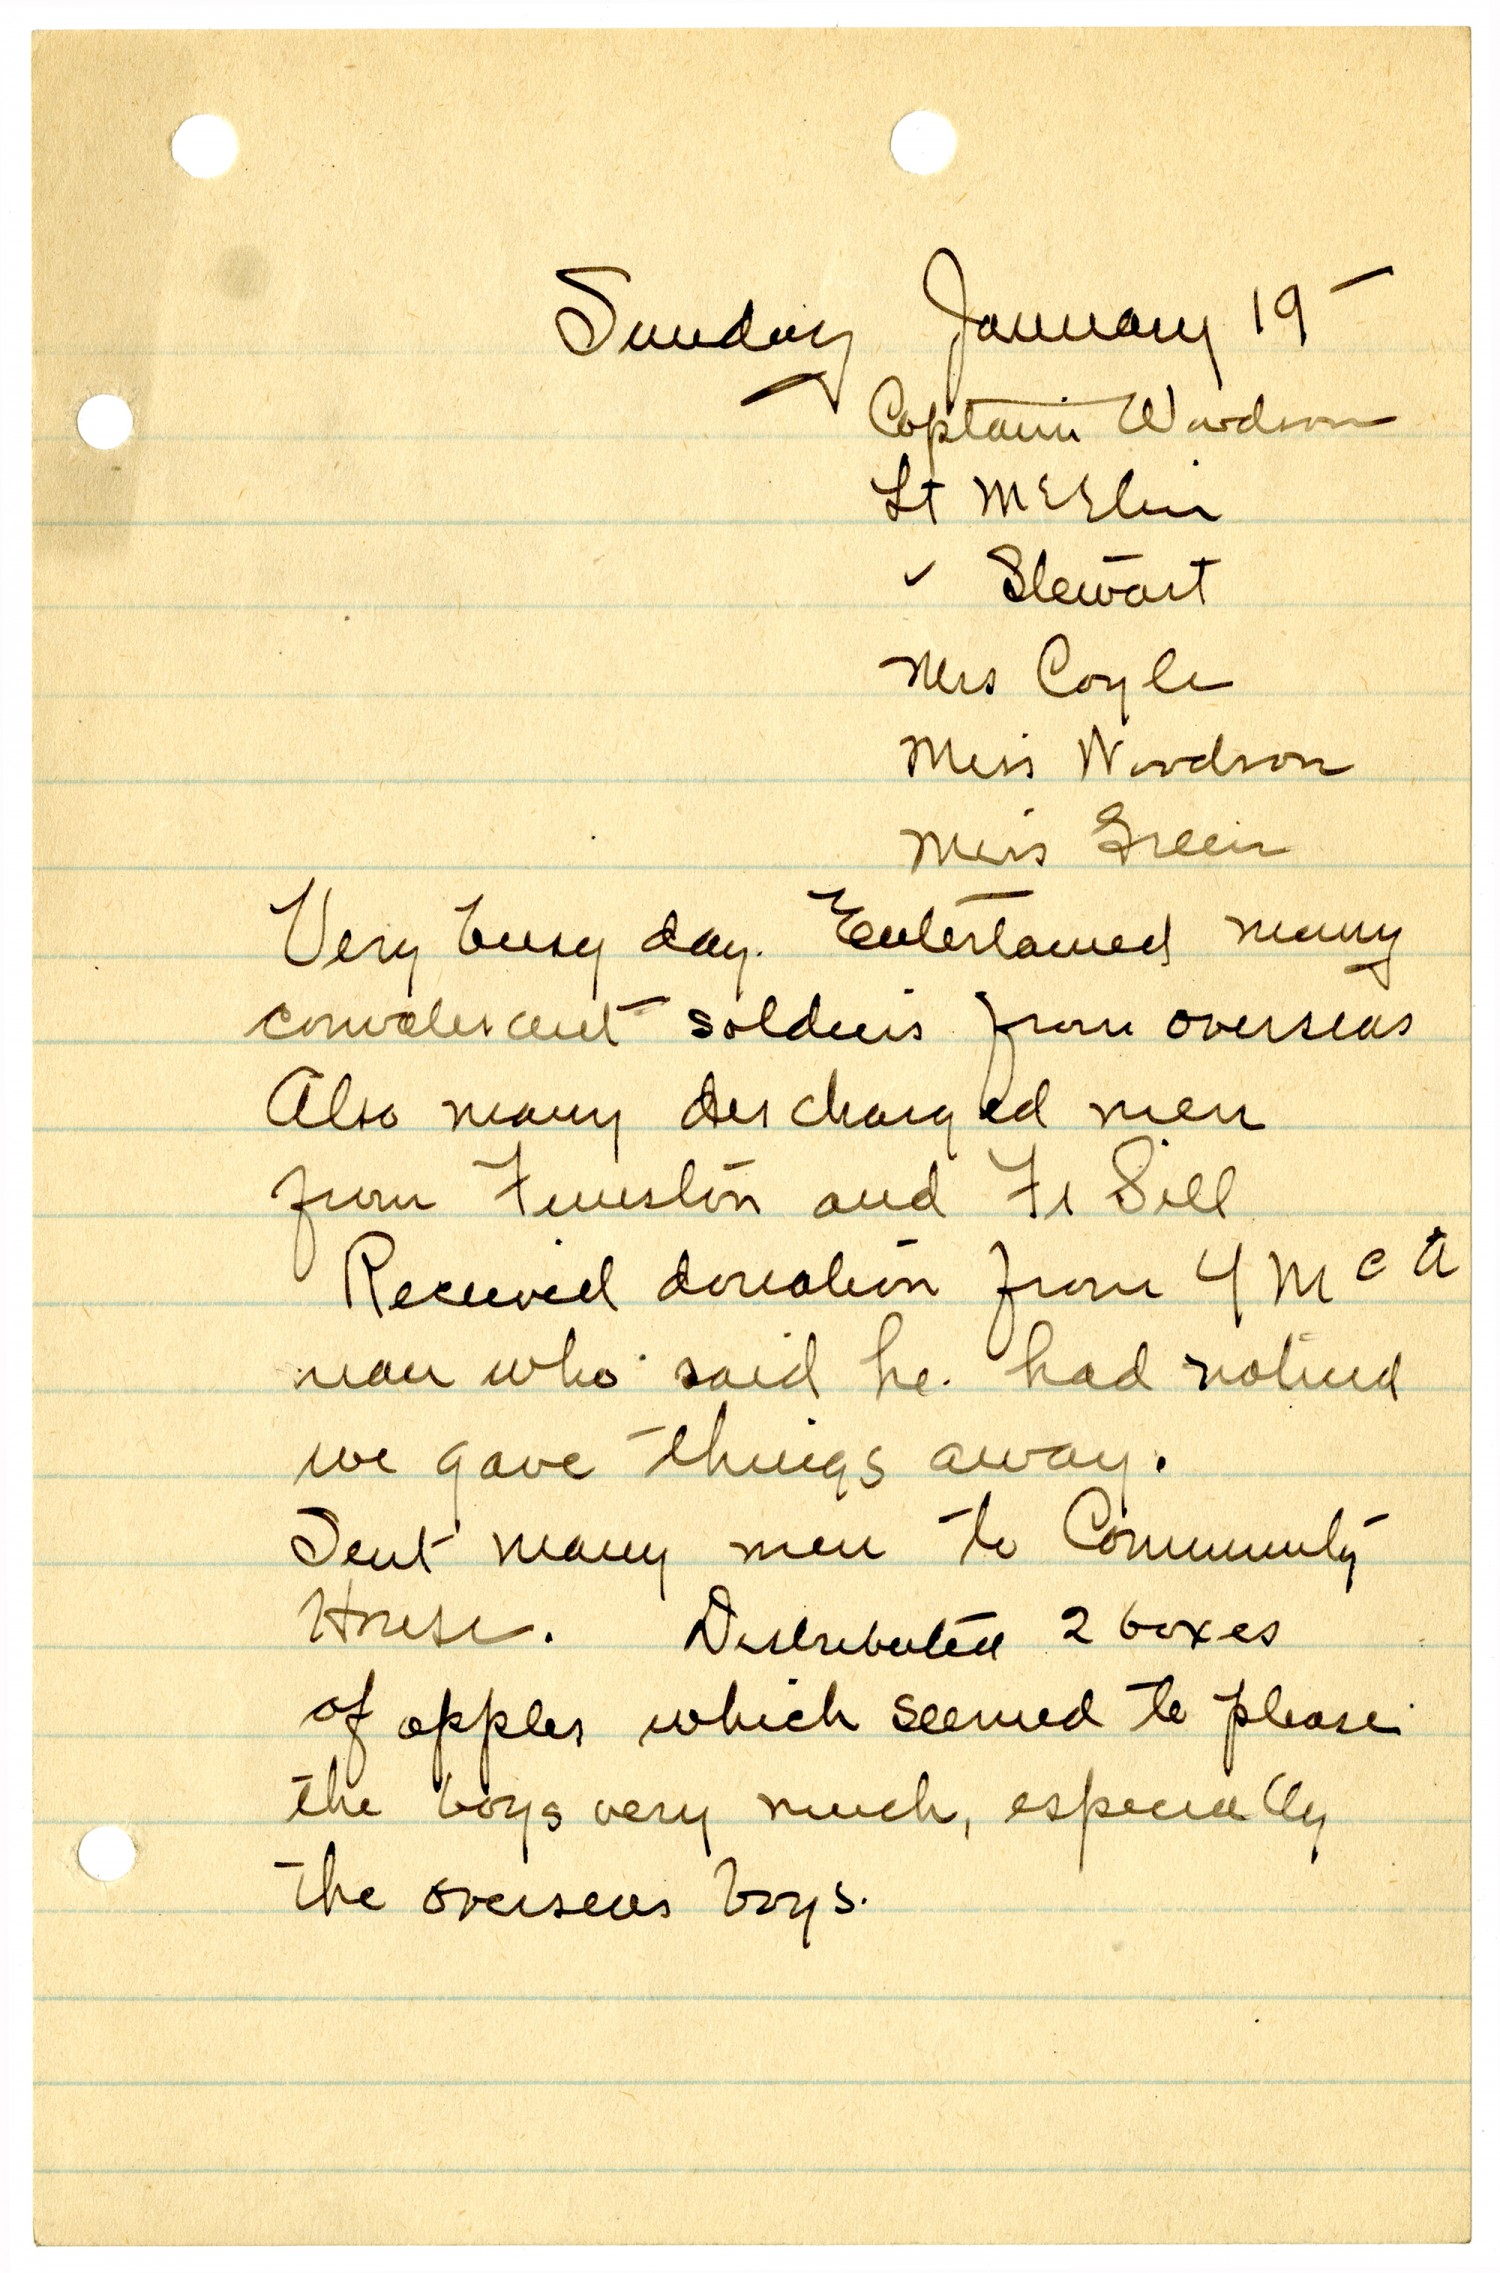 Sunday January 19
Captain Woodson
Lt McElin
✓ Stewart
Mrs Coyle
Miss Woodson
Miss Green
Very busy day. Entertained many
convalescent soldiers from overseas
Also many discharged men
from Funston and Ft Sill
Received donation from Y M C A
man who said he had noticed
we gave things away.
Sent many men to Community
House. Distributed 2 boxes
of apples which seemed to please
the boys very much, especially
the overseas boys.